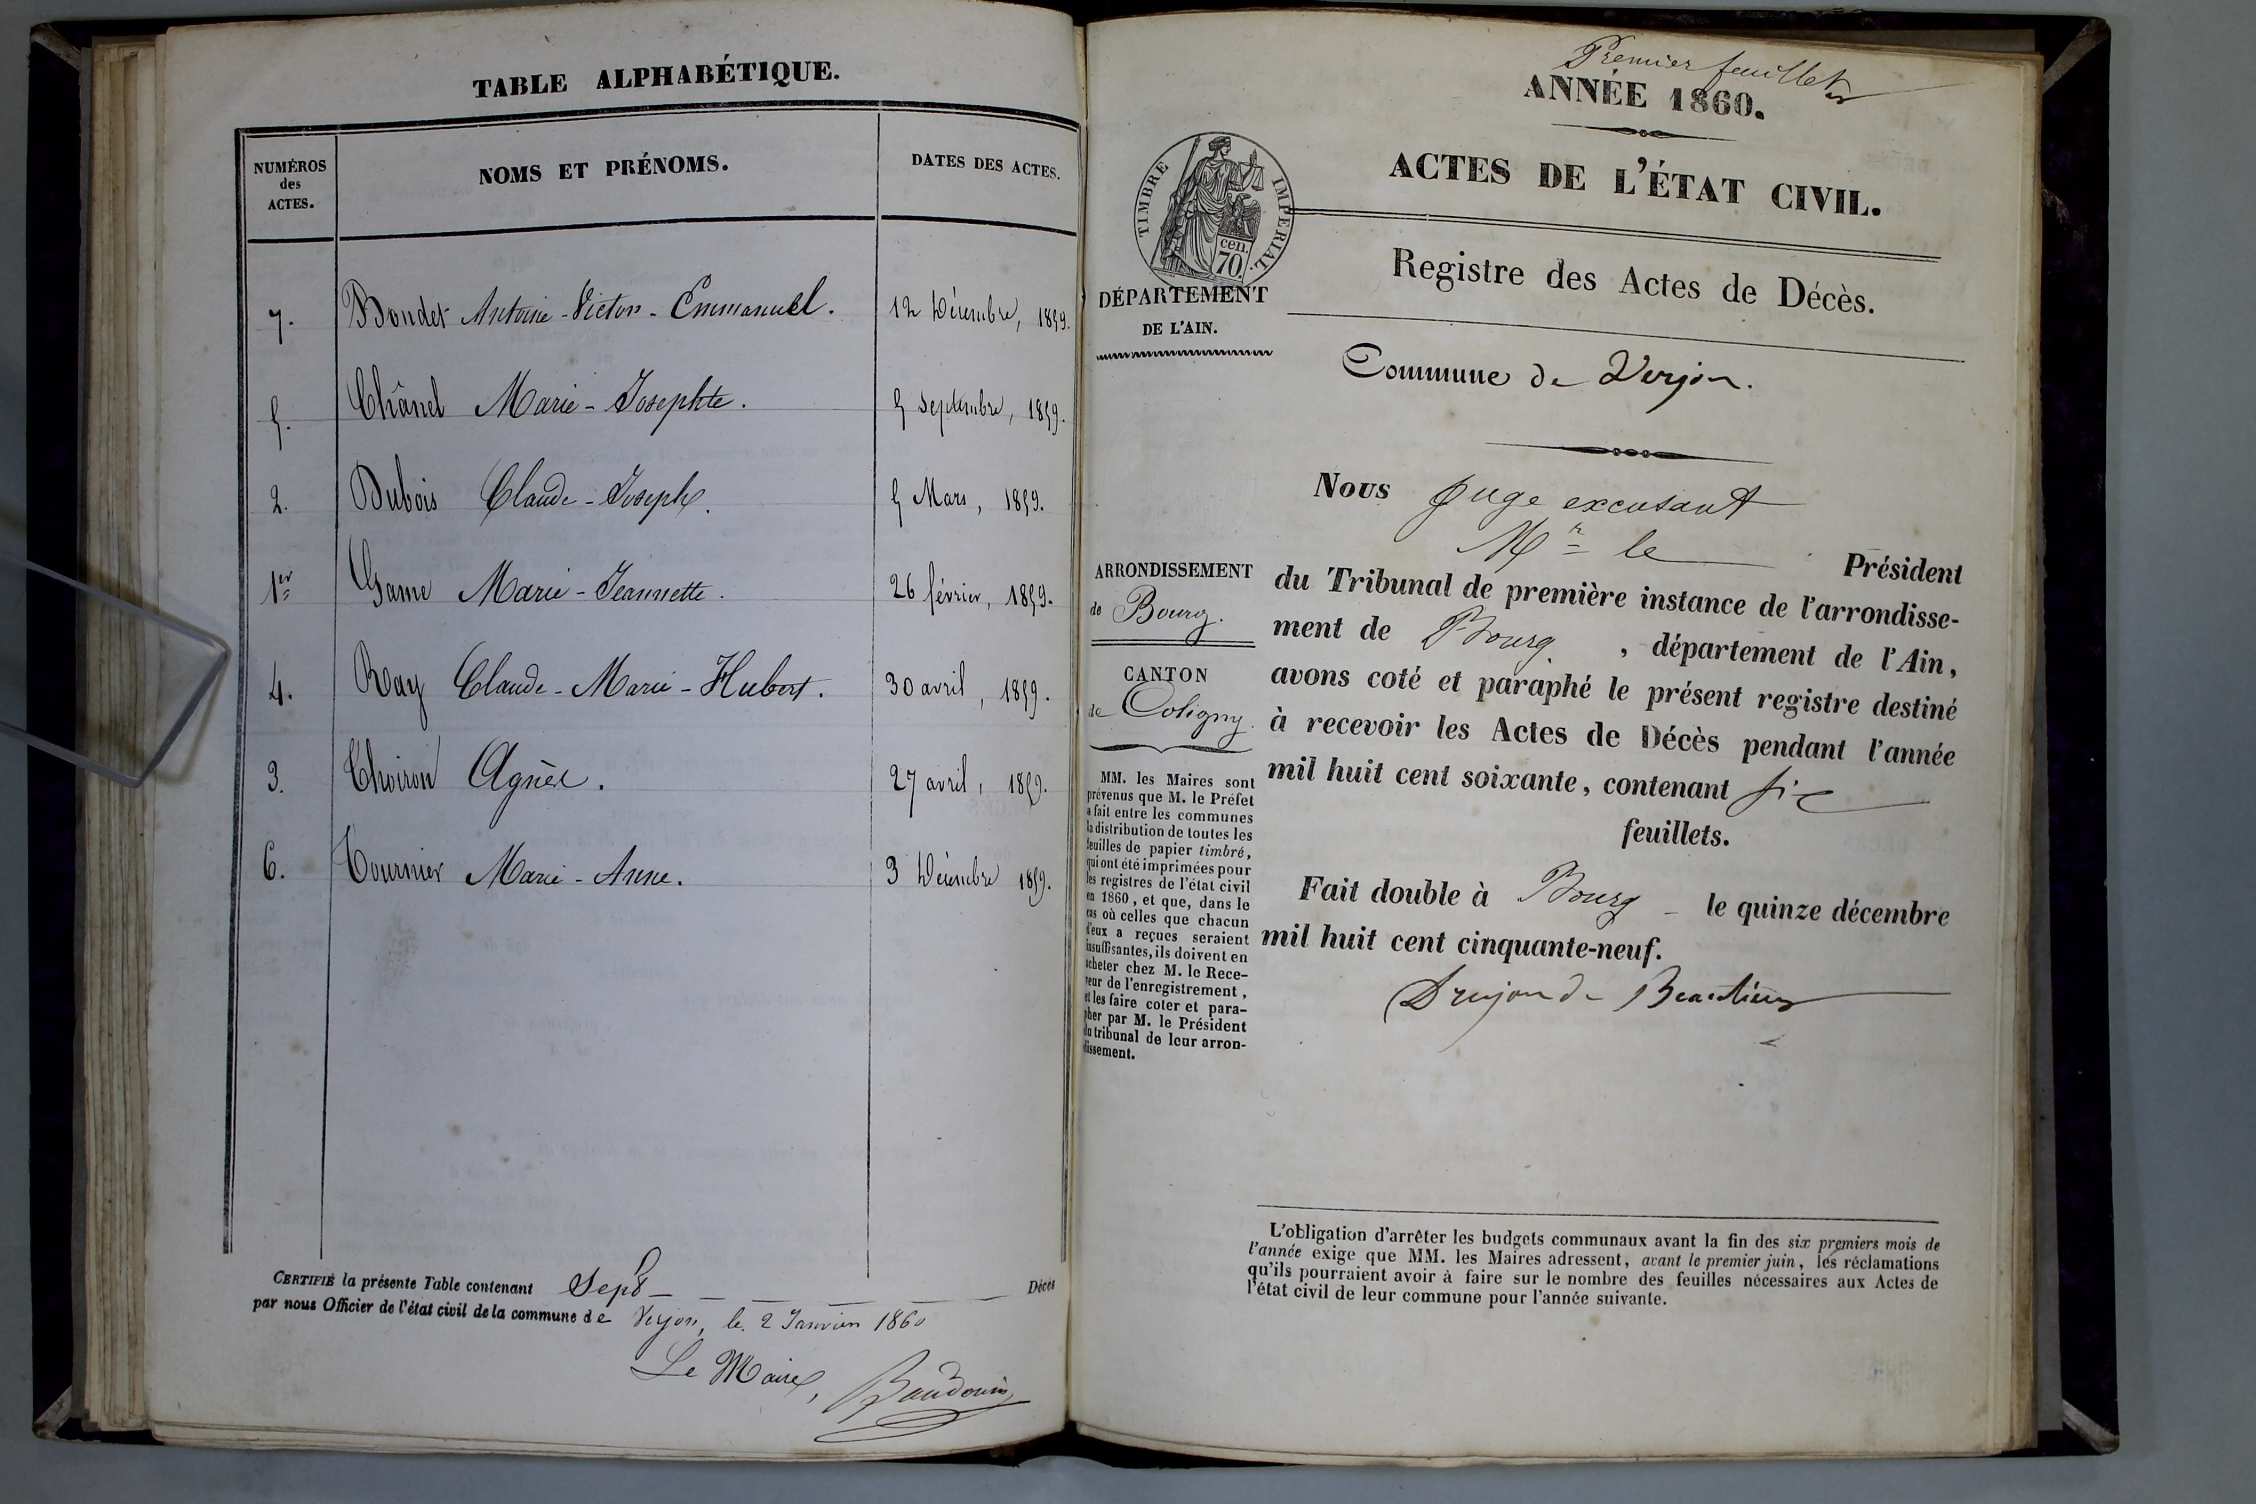 TABLE ALPHABÉTIQUE.
NUMÉROS
des
ACTES.
NOMS ET PRÉNOMS.
DATES DES ACTES.
7. Boudet Antoine-Victor-Emmanuel. 12 Décembre, 1859.
5. Chânel Marie-Josephte. 5 Septembre, 1859.
2. Dubois Claude-Joseph. 5 Mars, 1859.
1er Game Marie-Jeannette. 26 février, 1859.
4. Ray Claude-Marie-Hubert. 30 avril, 1859.
3. Thoiron Agnès. 27 avril, 1859.
6. Tournier Marie-Anne. 3 Décembre 1859.
CERTIFIÉ la présente Table contenant Sept Décès
par nous Officier de l'état civil de la commune de Verjon, le 2 Janvier 1860
Le Maire, Baudouin
Premier feuillet
ANNÉE 1860.
ACTES DE L'ÉTAT CIVIL.
TIMBRE IMPÉRIAL.
cen
70
Registre des Actes de Décès.
DÉPARTEMENT
DE L'AIN.
Commune de Verjon.
Nous Juge excusant
Mr le Président
du Tribunal de première instance de l'arrondisse-
ment de Bourg, département de l'Ain,
avons coté et paraphé le présent registre destiné
à recevoir les Actes de Décès pendant l'année
mil huit cent soixante, contenant six
feuillets.
Fait double à Bourg le quinze décembre
mil huit cent cinquante-neuf.
Drujon de Beaulieu
ARRONDISSEMENT
de Bourg.
CANTON
de Coligny.
MM. les Maires sont
prévenus que M. le Préfet
a fait entre les communes
la distribution de toutes les
feuilles de papier timbré,
qui ont été imprimées pour
les registres de l'état civil
en 1860, et que, dans le
cas où celles que chacun
d'eux a reçues seraient
insuffisantes, ils doivent en
acheter chez M. le Rece-
veur de l'enregistrement,
et les faire coter et para-
pher par M. le Président
du tribunal de leur arron-
dissement.
L'obligation d'arrêter les budgets communaux avant la fin des six premiers mois de
l'année exige que MM. les Maires adressent, avant le premier juin, les réclamations
qu'ils pourraient avoir à faire sur le nombre des feuilles nécessaires aux Actes de
l'état civil de leur commune pour l'année suivante.